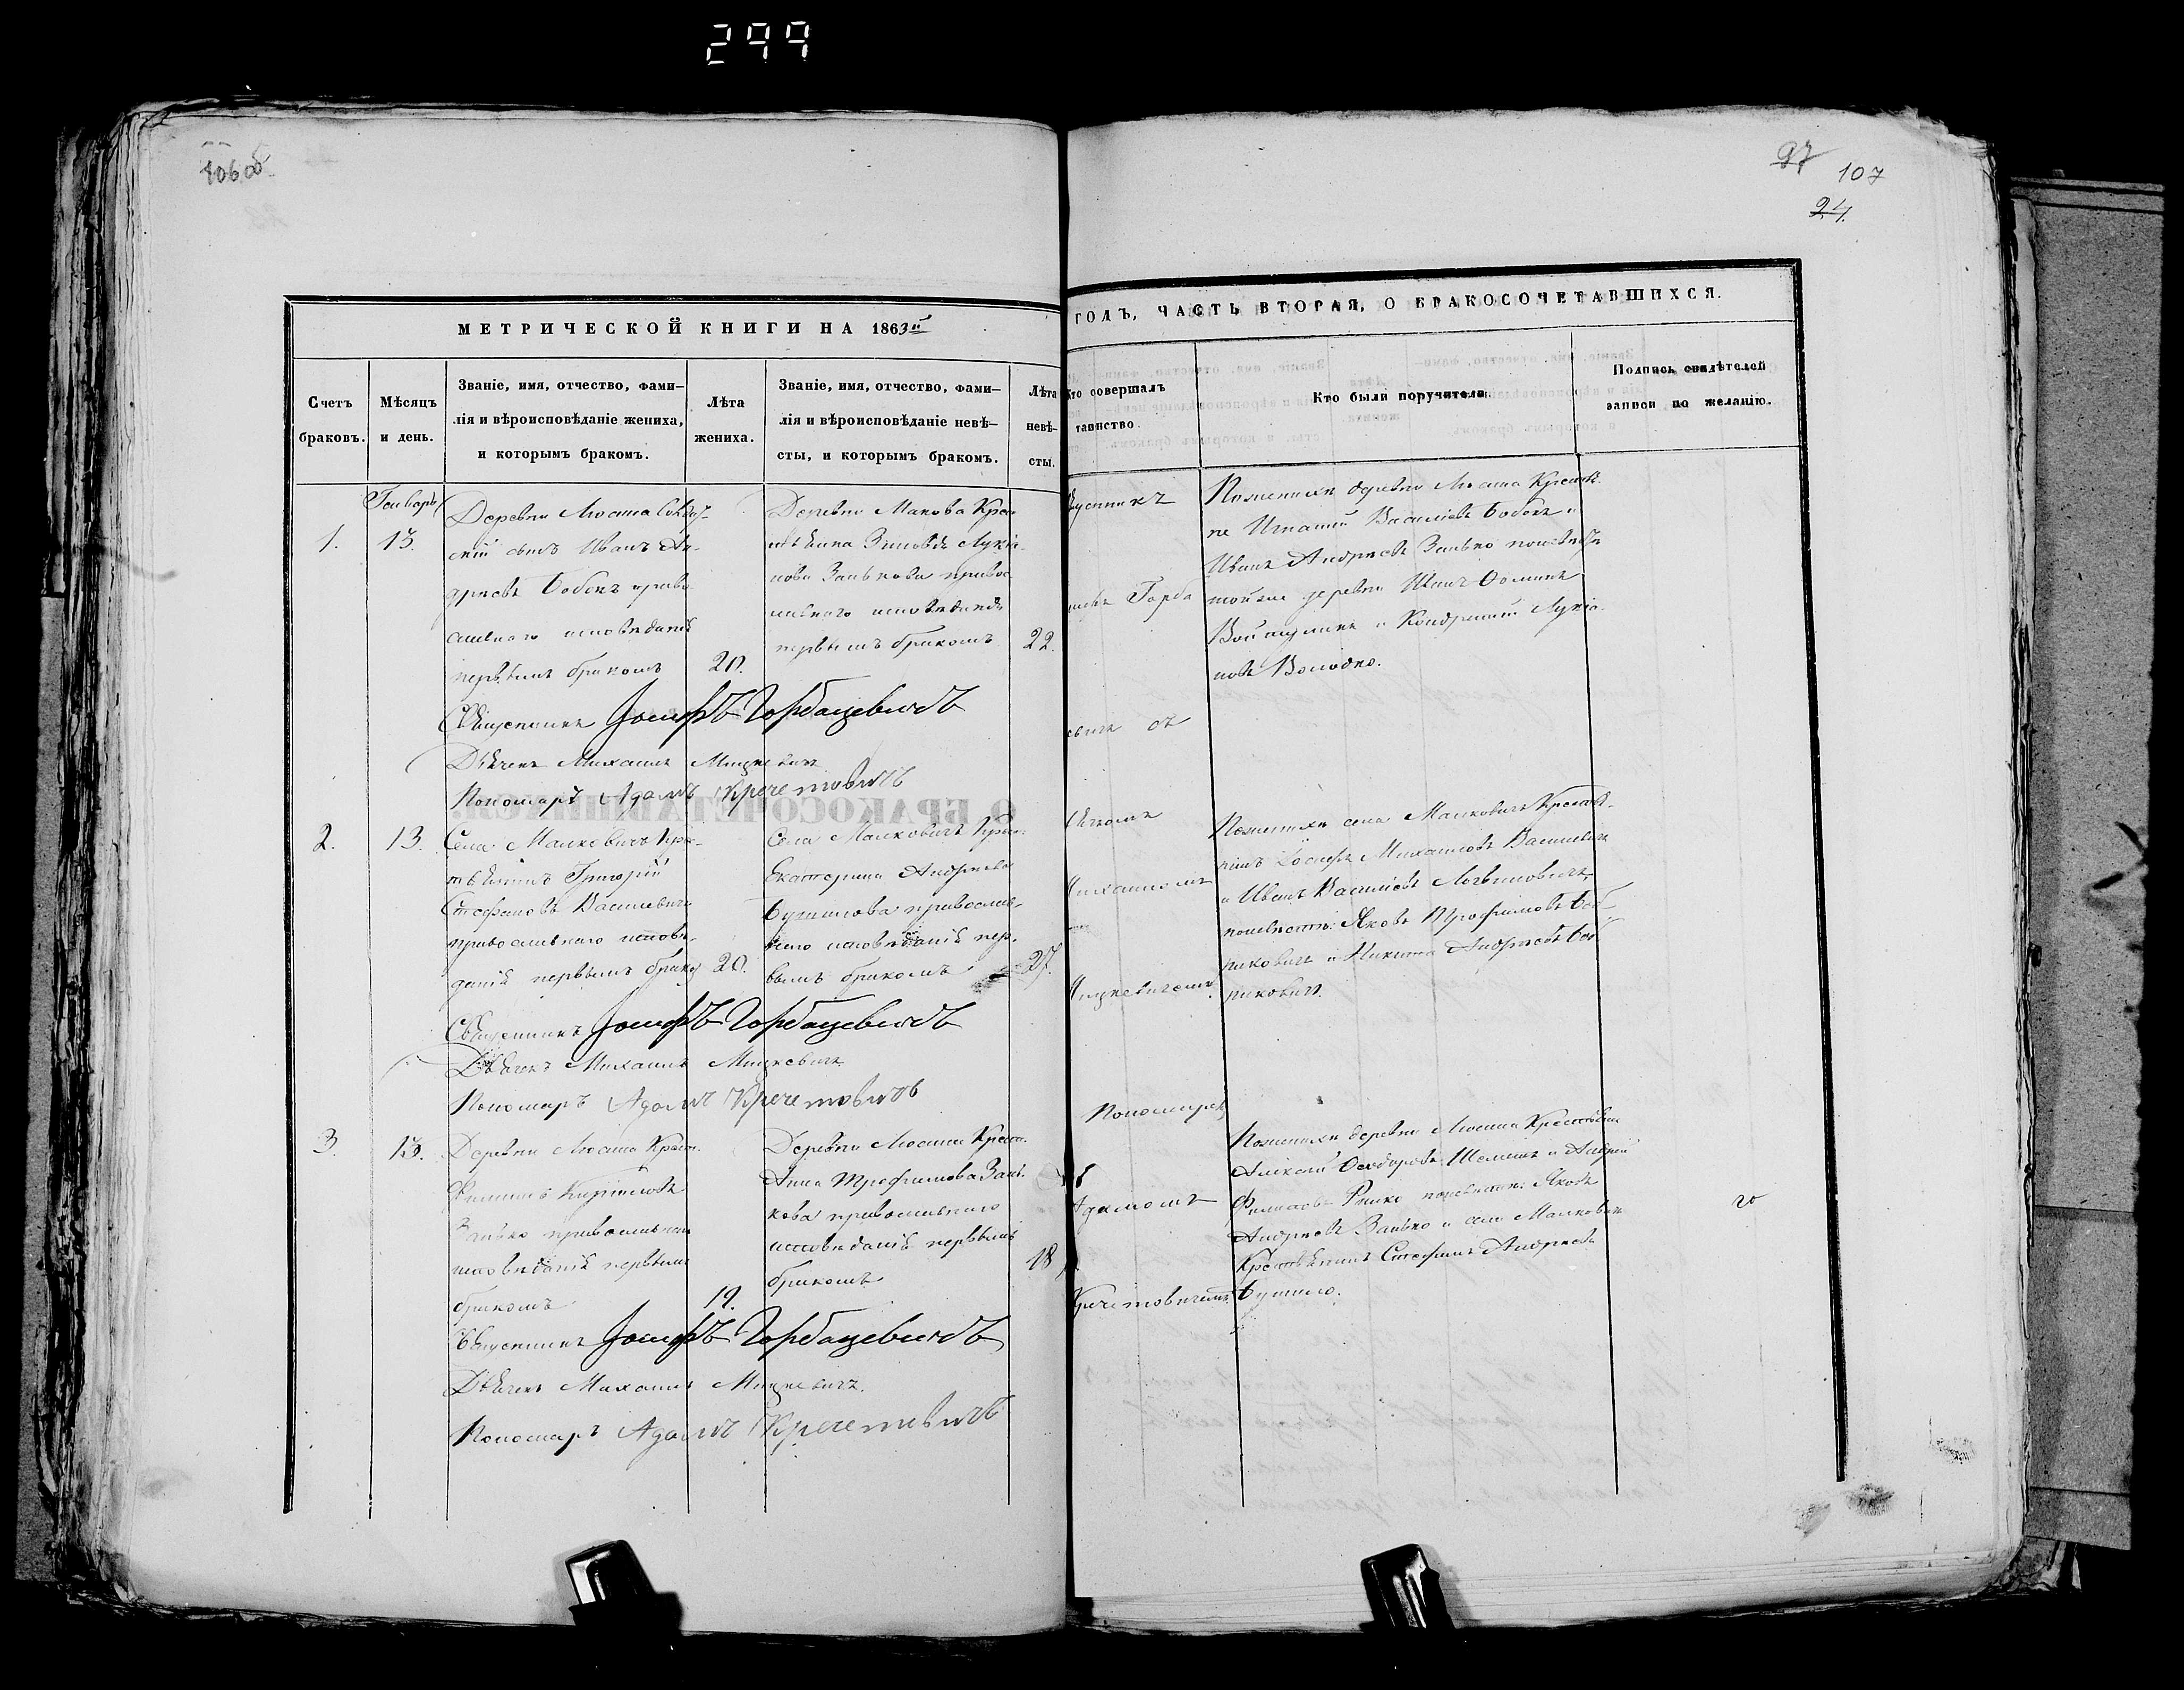 299
106 об.
97
107
24.
МЕТРИЧЕСКОЙ КНИГИ НА 1863й
ГОДЪ, ЧАСТЬ ВТОРАЯ, О БРАКОСОЧЕТАВШИХСЯ.
Счетъ
браковъ.
Мѣсяцъ
и день.
Званіе, имя, отчество, фами–
лія и вѣроисповѣданіе жениха,
и которымъ бракомъ.
Лѣта
жениха.
Званіе, имя, отчество, фами–
лія и вѣроисповѣданіе невѣ–
сты, и которымъ бракомъ.
Лѣта
невѣ–
сты.
Кто совершалъ
таинство.
Кто были поручители.
Подпись свидѣтелей
записи по желанію.
Генварь
1.
13.
Деревни Люсина
скій сынъ Иванъ Ан-
дреевъ Бобекъ право
славнаго исповѣданія
первымъ бракомъ
20.
Деревни Макова Крес
тьянка Зиновія Лукія-
нова Занькова правос
лавнаго исповѣданія
первымъ бракомъ
22.
Поженихи деревни Люсина Крестья-
не Игнатій Василіевъ Бобекъ и
Иванъ Андреевъ Занько поневѣстѣ
тойже деревни
и Кондратій Лукія-
новъ Володко.
Священникъ Іосифъ Горбацевичъ
Дьячекъ Михаилъ Мицкевичъ
Пономаръ Адамъ Кречетовичъ
2.
13.
Села Малковичъ Крес-
тьянинъ Григорій
Стефановъ Василевичъ
православнаго исповѣ-
данія первымъ брако
20.
Села Малковичъ Крест.
Екатерина Андреева
Бушилова православ-
наго исповѣданія пер-
вымъ бракомъ
27.
Михаиломъ
Мицкевичемъ
Поженихи села Малковичъ Крестья-
нинъ Іосифъ Михаиловъ Василевичъ
и Иванъ Василіевъ Логвиновичъ,
поневѣстѣ: Яковъ Трофимовъ Боб-
риковичъ и Никита Андреевъ Боб
риковичъ.
Священникъ Іосифъ Горбацевичъ
Дьячекъ Михаилъ Мицкевичъ
Пономаръ Адамъ Кречетовичъ
3.
13.
Деревни Люсина Крест.
Филипъ Кириловъ
Занько православнаго
исповѣданія первымъ
бракомъ
19.
Деревни Люсина Крест.
Анна Трофимова Зань-
кова православнаго
исповѣданія первымъ
бракомъ
18
Пономаремъ
Адамомъ
Кречетовичемъ
Поженихи деревни Люсина Крестьяни
Алексій Феодоровъ и Андрей
Филиповъ поневѣстѣ: Яковъ
Андреевъ Занько и села Малковичъ
Крестьянинъ Стефанъ Андреевъ
Бушило.
Священникъ Іосифъ Горбацевичъ
Дьячекъ Михаилъ Мицкевичъ.
Пономаръ Адамъ Кречетовичъ